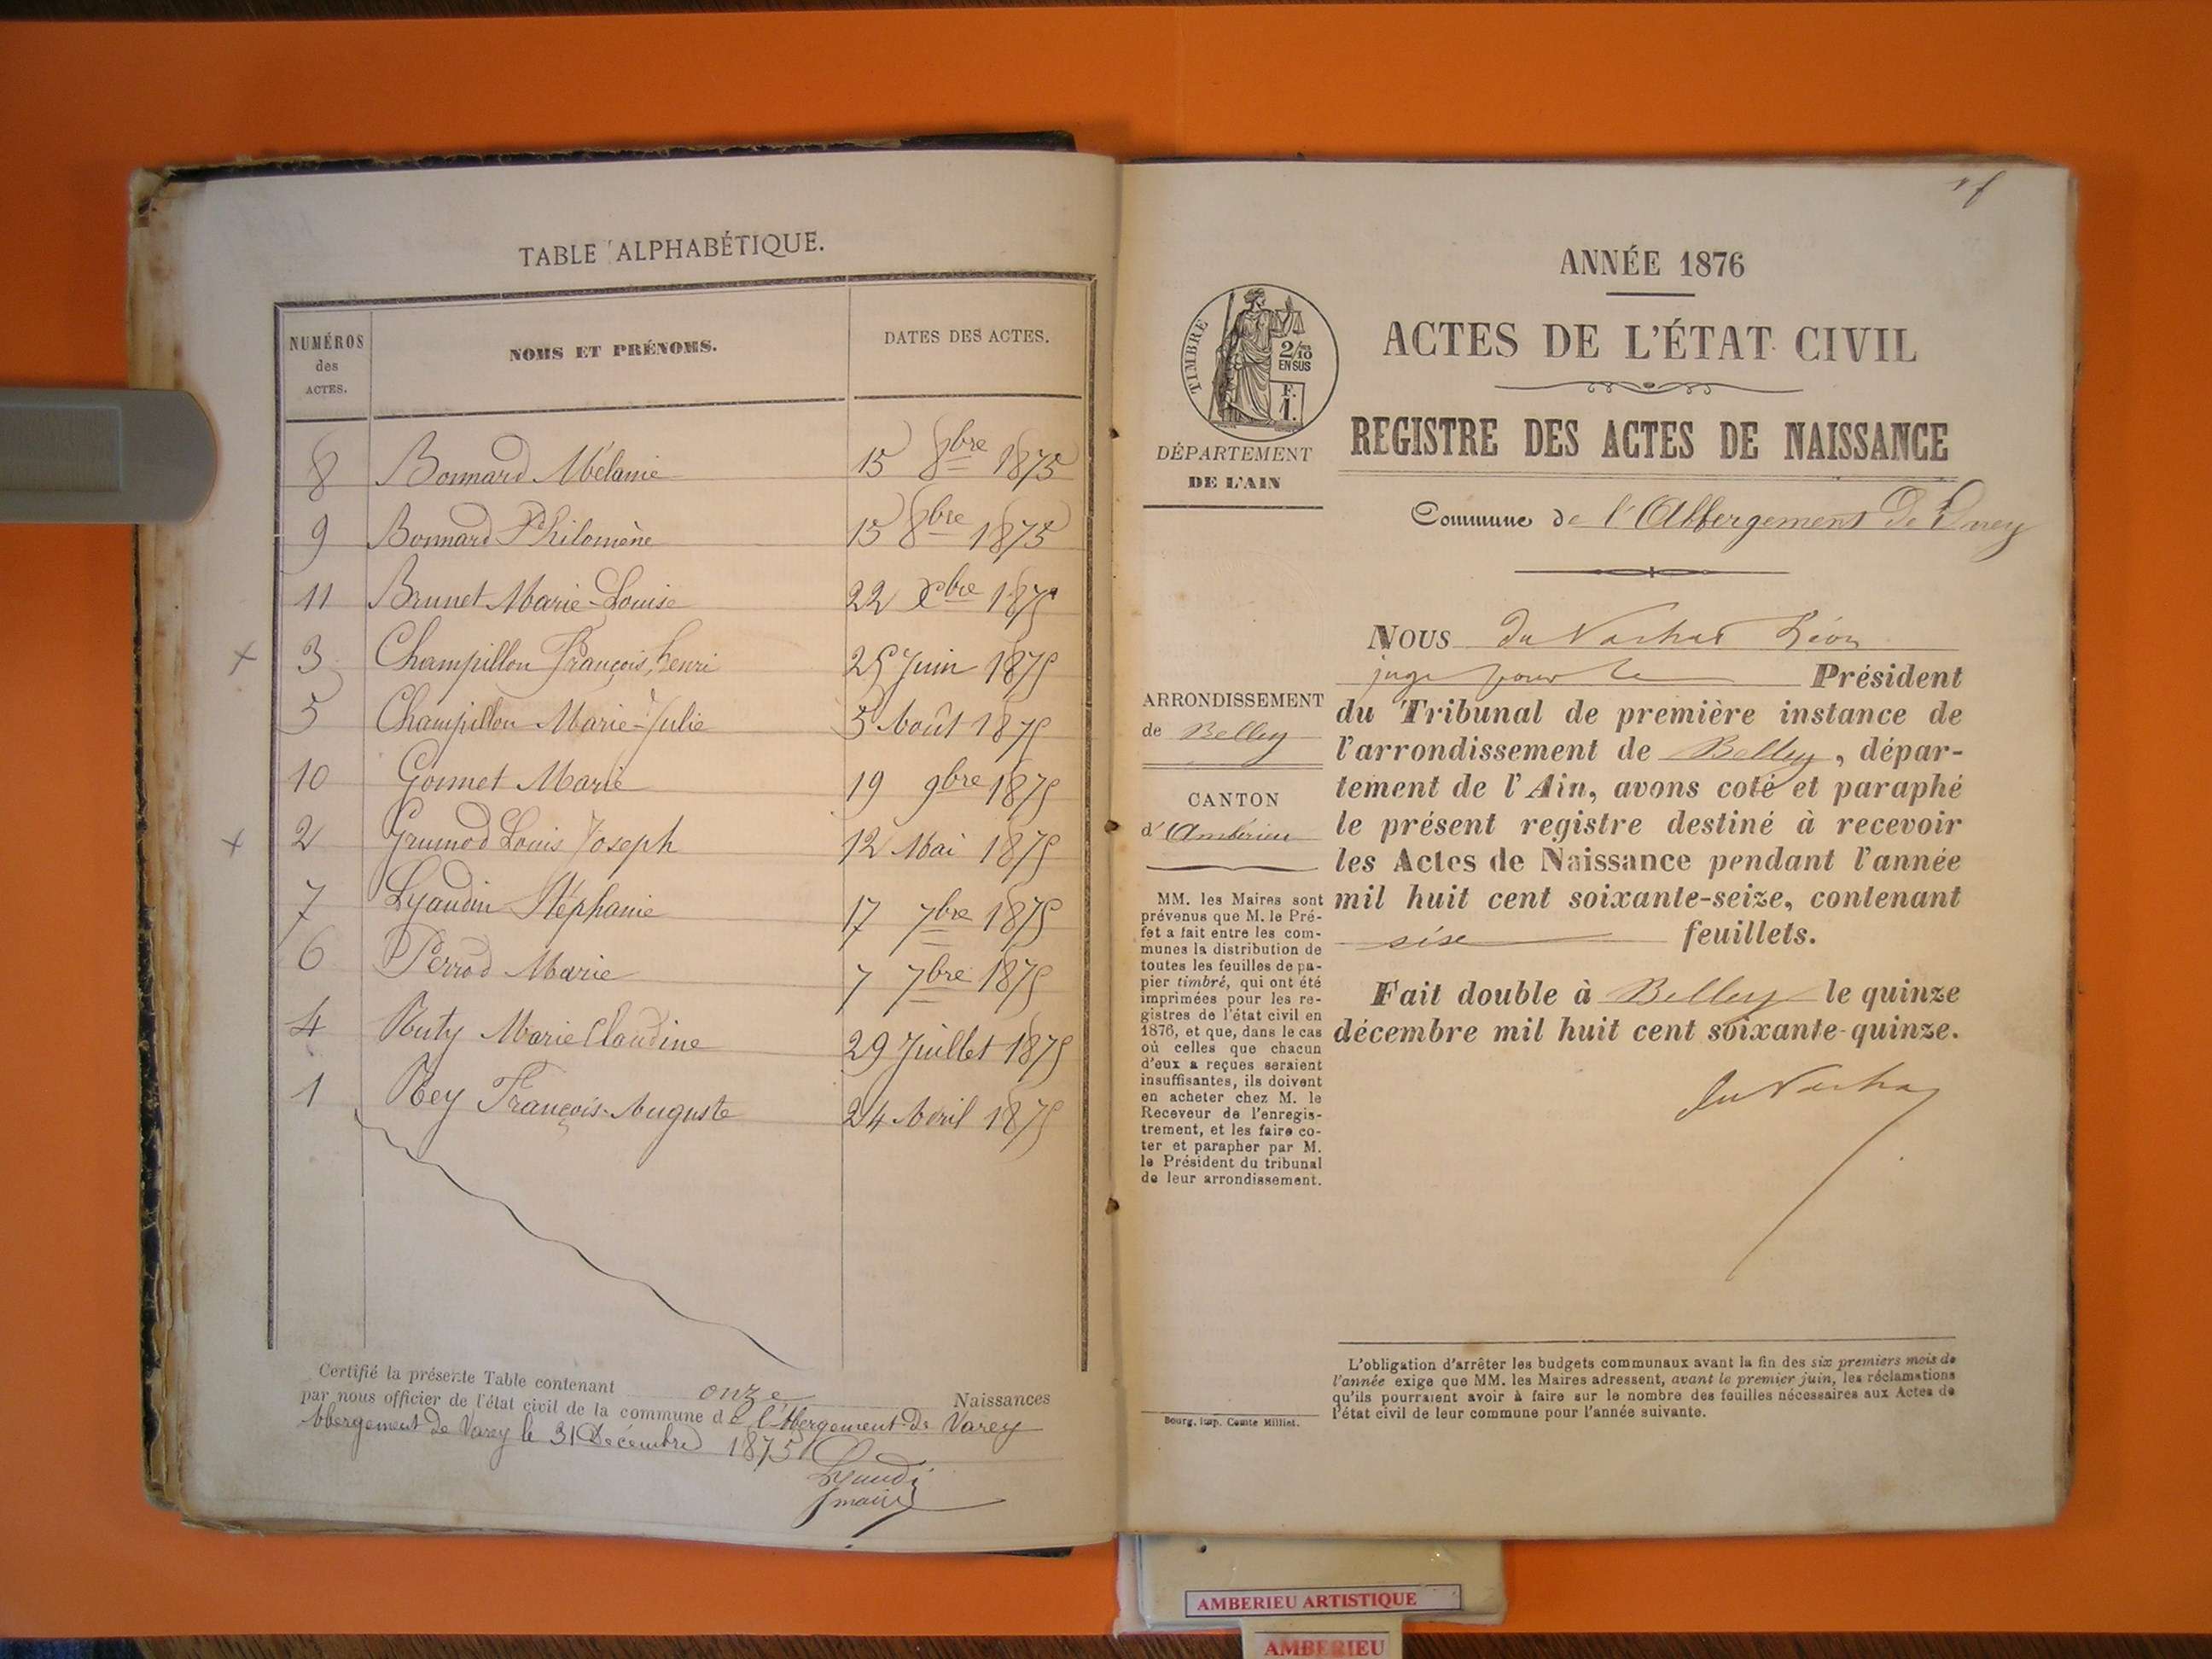 TABLE ALPHABÉTIQUE.
NUMÉROS des ACTES.
NOMS ET PRÉNOMS.
DATES DES ACTES.
8 Bonnard Mélanie 15 8bre 1875
9 Bonnard Philomène 15 8bre 1875
11 Brunet Marie-Louise 22 Xbre 1875
+ 3 Champillon François, henri 25 Juin 1875
5 Champillon Marie-Julie 5 Août 1875
10 Gonnet Marie 19 9bre 1875
+ 2 Grumod Louis Joseph 12 Mai 1875
7 Lyaudin Stéphanie 17 7bre 1875
6 Perrod Marie 7 7bre 1875
4 Ruty Marie Claudine 29 Juillet 1875
1 Rey François-Auguste 24 Avril 1875
Certifié la présente Table contenant onze Naissances
par nous officier de l'état civil de la commune de l'Abergement-de Varey
Abergement de Varey le 31 Décembre 1875
maire
ANNÉE 1876
ACTES DE L'ÉTAT CIVIL
REGISTRE DES ACTES DE NAISSANCE
TIMBRE
2/10
EN SUS
F.
1.
DÉPARTEMENT
DE L'AIN
Commune de l'Abbergement de
ARRONDISSEMENT
de Belley
CANTON
d'Ambérieu
MM. les Maires sont
prévenus que M. le Pré-
fet a fait entre les com-
munes la distribution de
toutes les feuilles de pa-
pier timbré, qui ont été
imprimées pour les re-
gistres de l'état civil en
1876, et que, dans le cas
où celles que chacun
d'eux a reçues seraient
insuffisantes, ils doivent
en acheter chez M. le
Receveur de l'enregis-
trement, et les faire co-
ter et parapher par M.
le Président du tribunal
de leur arrondissement.
Bourg, imp. Comte Milliet.
NOUS du Vachat Léon
juge pour le Président
du Tribunal de première instance de
l'arrondissement de Belley, dépar-
tement de l'Ain, avons coté et paraphé
le présent registre destiné à recevoir
les Actes de Naissance pendant l'année
mil huit cent soixante-seize, contenant
six feuillets.
Fait double à Belley le quinze
décembre mil huit cent soixante-quinze.
du Vachat
L'obligation d'arrêter les budgets communaux avant la fin des six premiers mois de
l'année exige que MM. les Maires adressent, avant le premier juin, les réclamations
qu'ils pourraient avoir à faire sur le nombre des feuilles nécessaires aux Actes de
l'état civil de leur commune pour l'année suivante.
AMBERIEU ARTISTIQUE
AMBERIEU